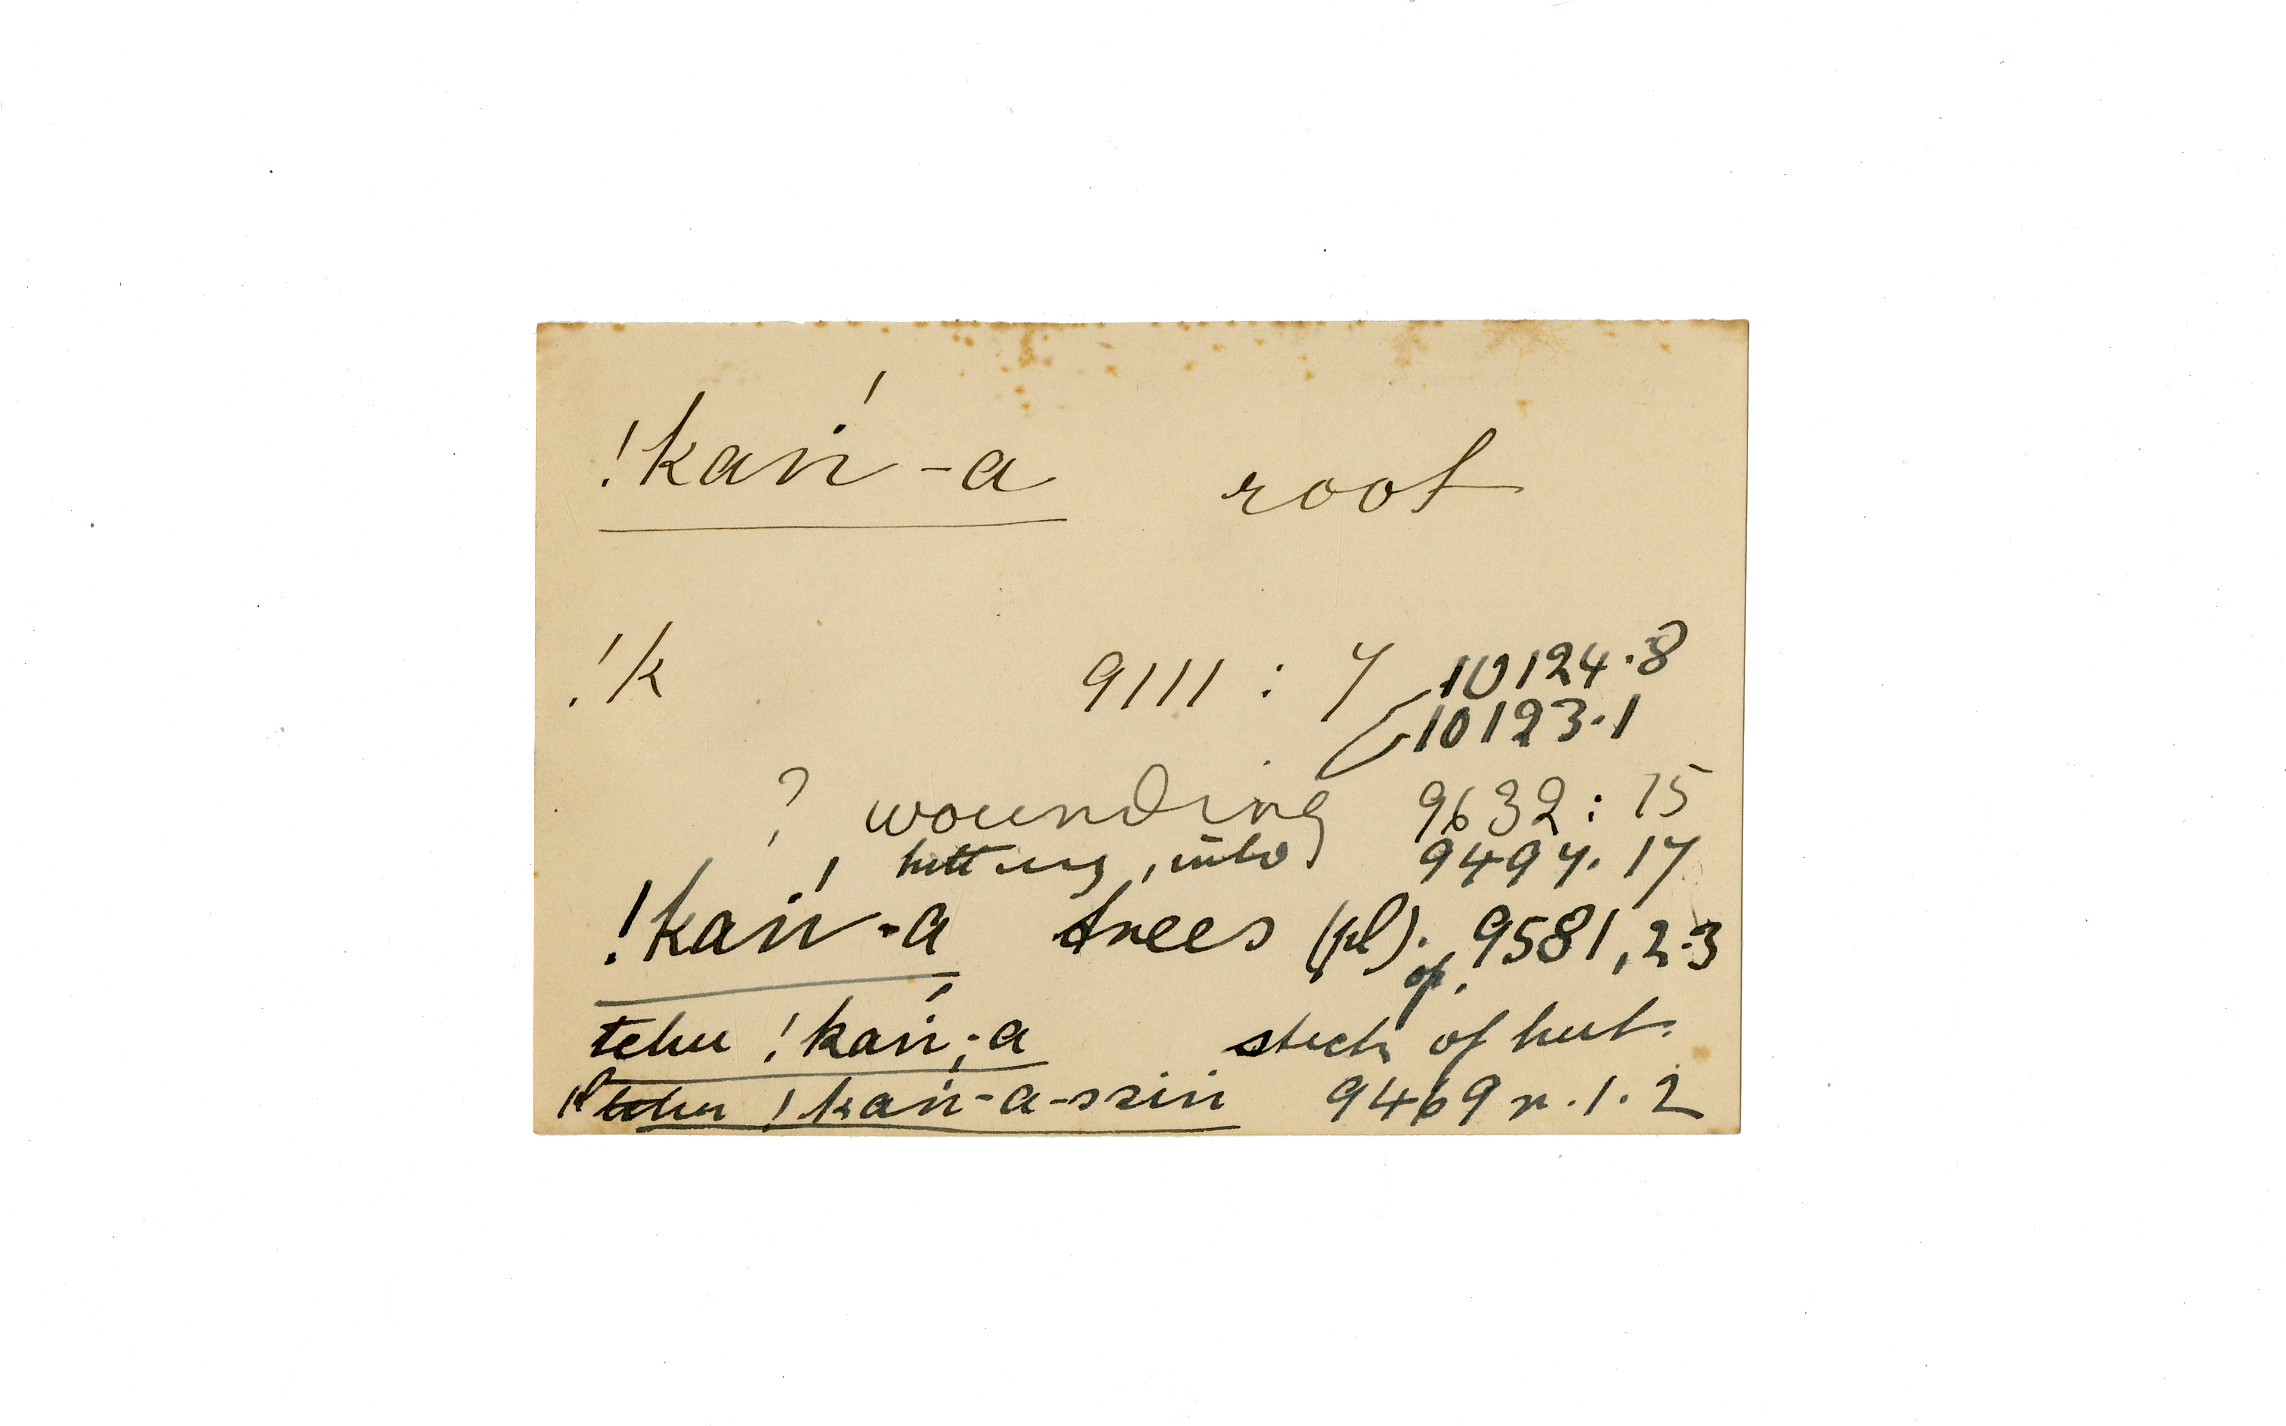 !kaṅ́-a root
!k 9111 : 7 10124.8
10123.1
? wounding 9632 : 15
hitting, into 9497. 17
!kaṅ́-a trees (pl). 9581, 2-3
of.
tchu !kaṅ́-a sticks of hut.
pl tchu !kaṅ-a-ssiṅ 9469 r. 1. 2